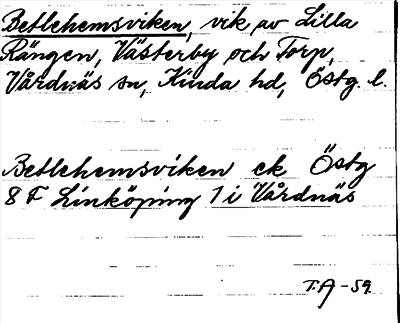 Betlehemsviken, vik av Lilla
Rängen, Västerby och Torp,
Vårdnäs sn, Kinda hd, Östg. l.
Betlehemsviken ek Östg
8 F Linköping 1 i Vårdnäs
T.A -59